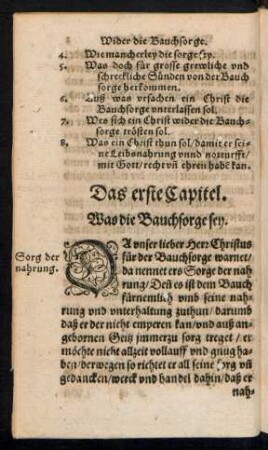 Wider die Bauchsorge.
4. Wiemancherley die sorge sey.
5. Was doch für grosse grewliche vnd
schreckliche Sünden von der Bauch
sorge herkommen.
6. Auß was vrsachen ein Christ die
Bauchsorge vnterlassen sol.
7. Wes sich ein Christ wider die Bauch-
sorge trösten sol.
8. Was ein Christ thun sol / damit er sei-
ne Leibsnahrung vnnd notturfft /
mit Gott / recht vñ ehren habē kan.
Das erste Capitel.
Was die Bauchsorge sey.
Sorg der
nahrung.
DA vnser lieber Herr Christus
für der Bauchsorge warnet /
da nennet ers Sorge der nah
rung / Deñ es ist dem Bauch
fürnemlich vmb seine nah-
rung vnd vnterhaltung zuthun / darumb
daß er der nicht emperen kan / vnd auß an-
gebornen Geitz jmmerzu sorg treget / er
möchte nicht allzeit vollauff vnd gnug ha-
ben / derwegen so richtet er all seine sorg vñ
gedancken / werck vnd handel dahin / daß er
nah-